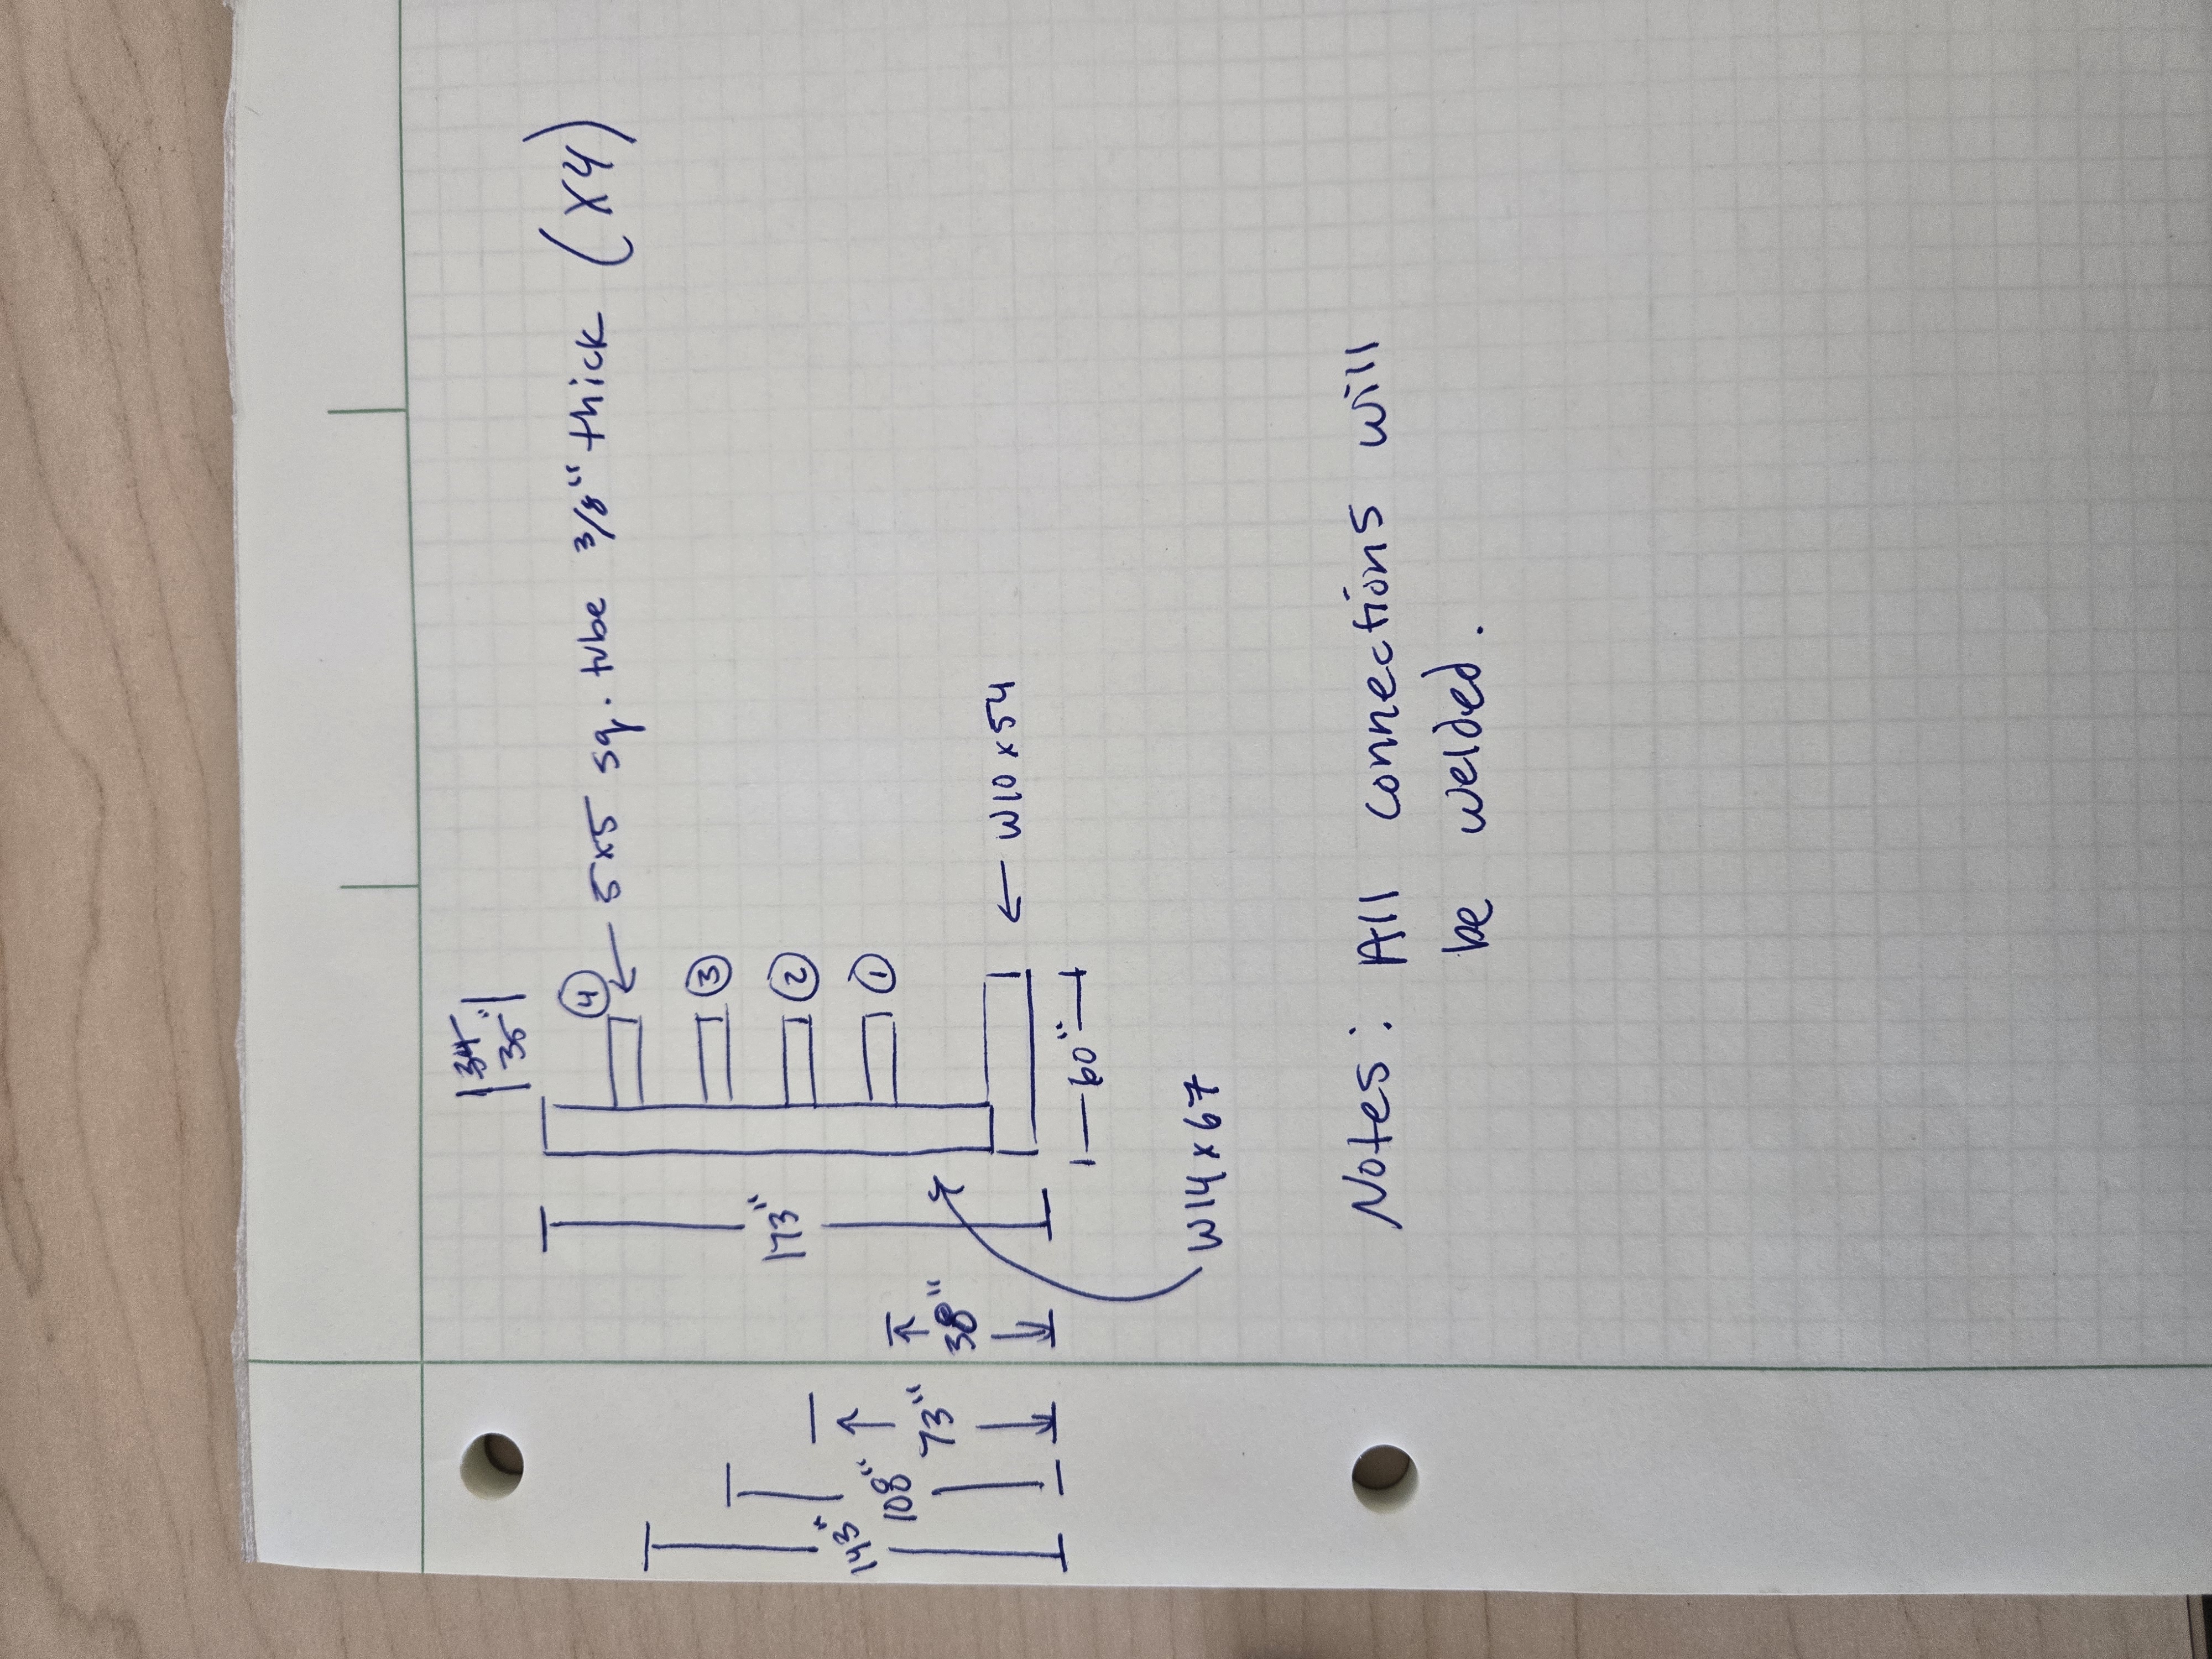 35"
④ 5x5 sq. tube 3/8" thick (x4)
③
②
173"
①
143" 108" 73" 38"
W10x54
60"
W14x67
Notes: All connections will
be welded.